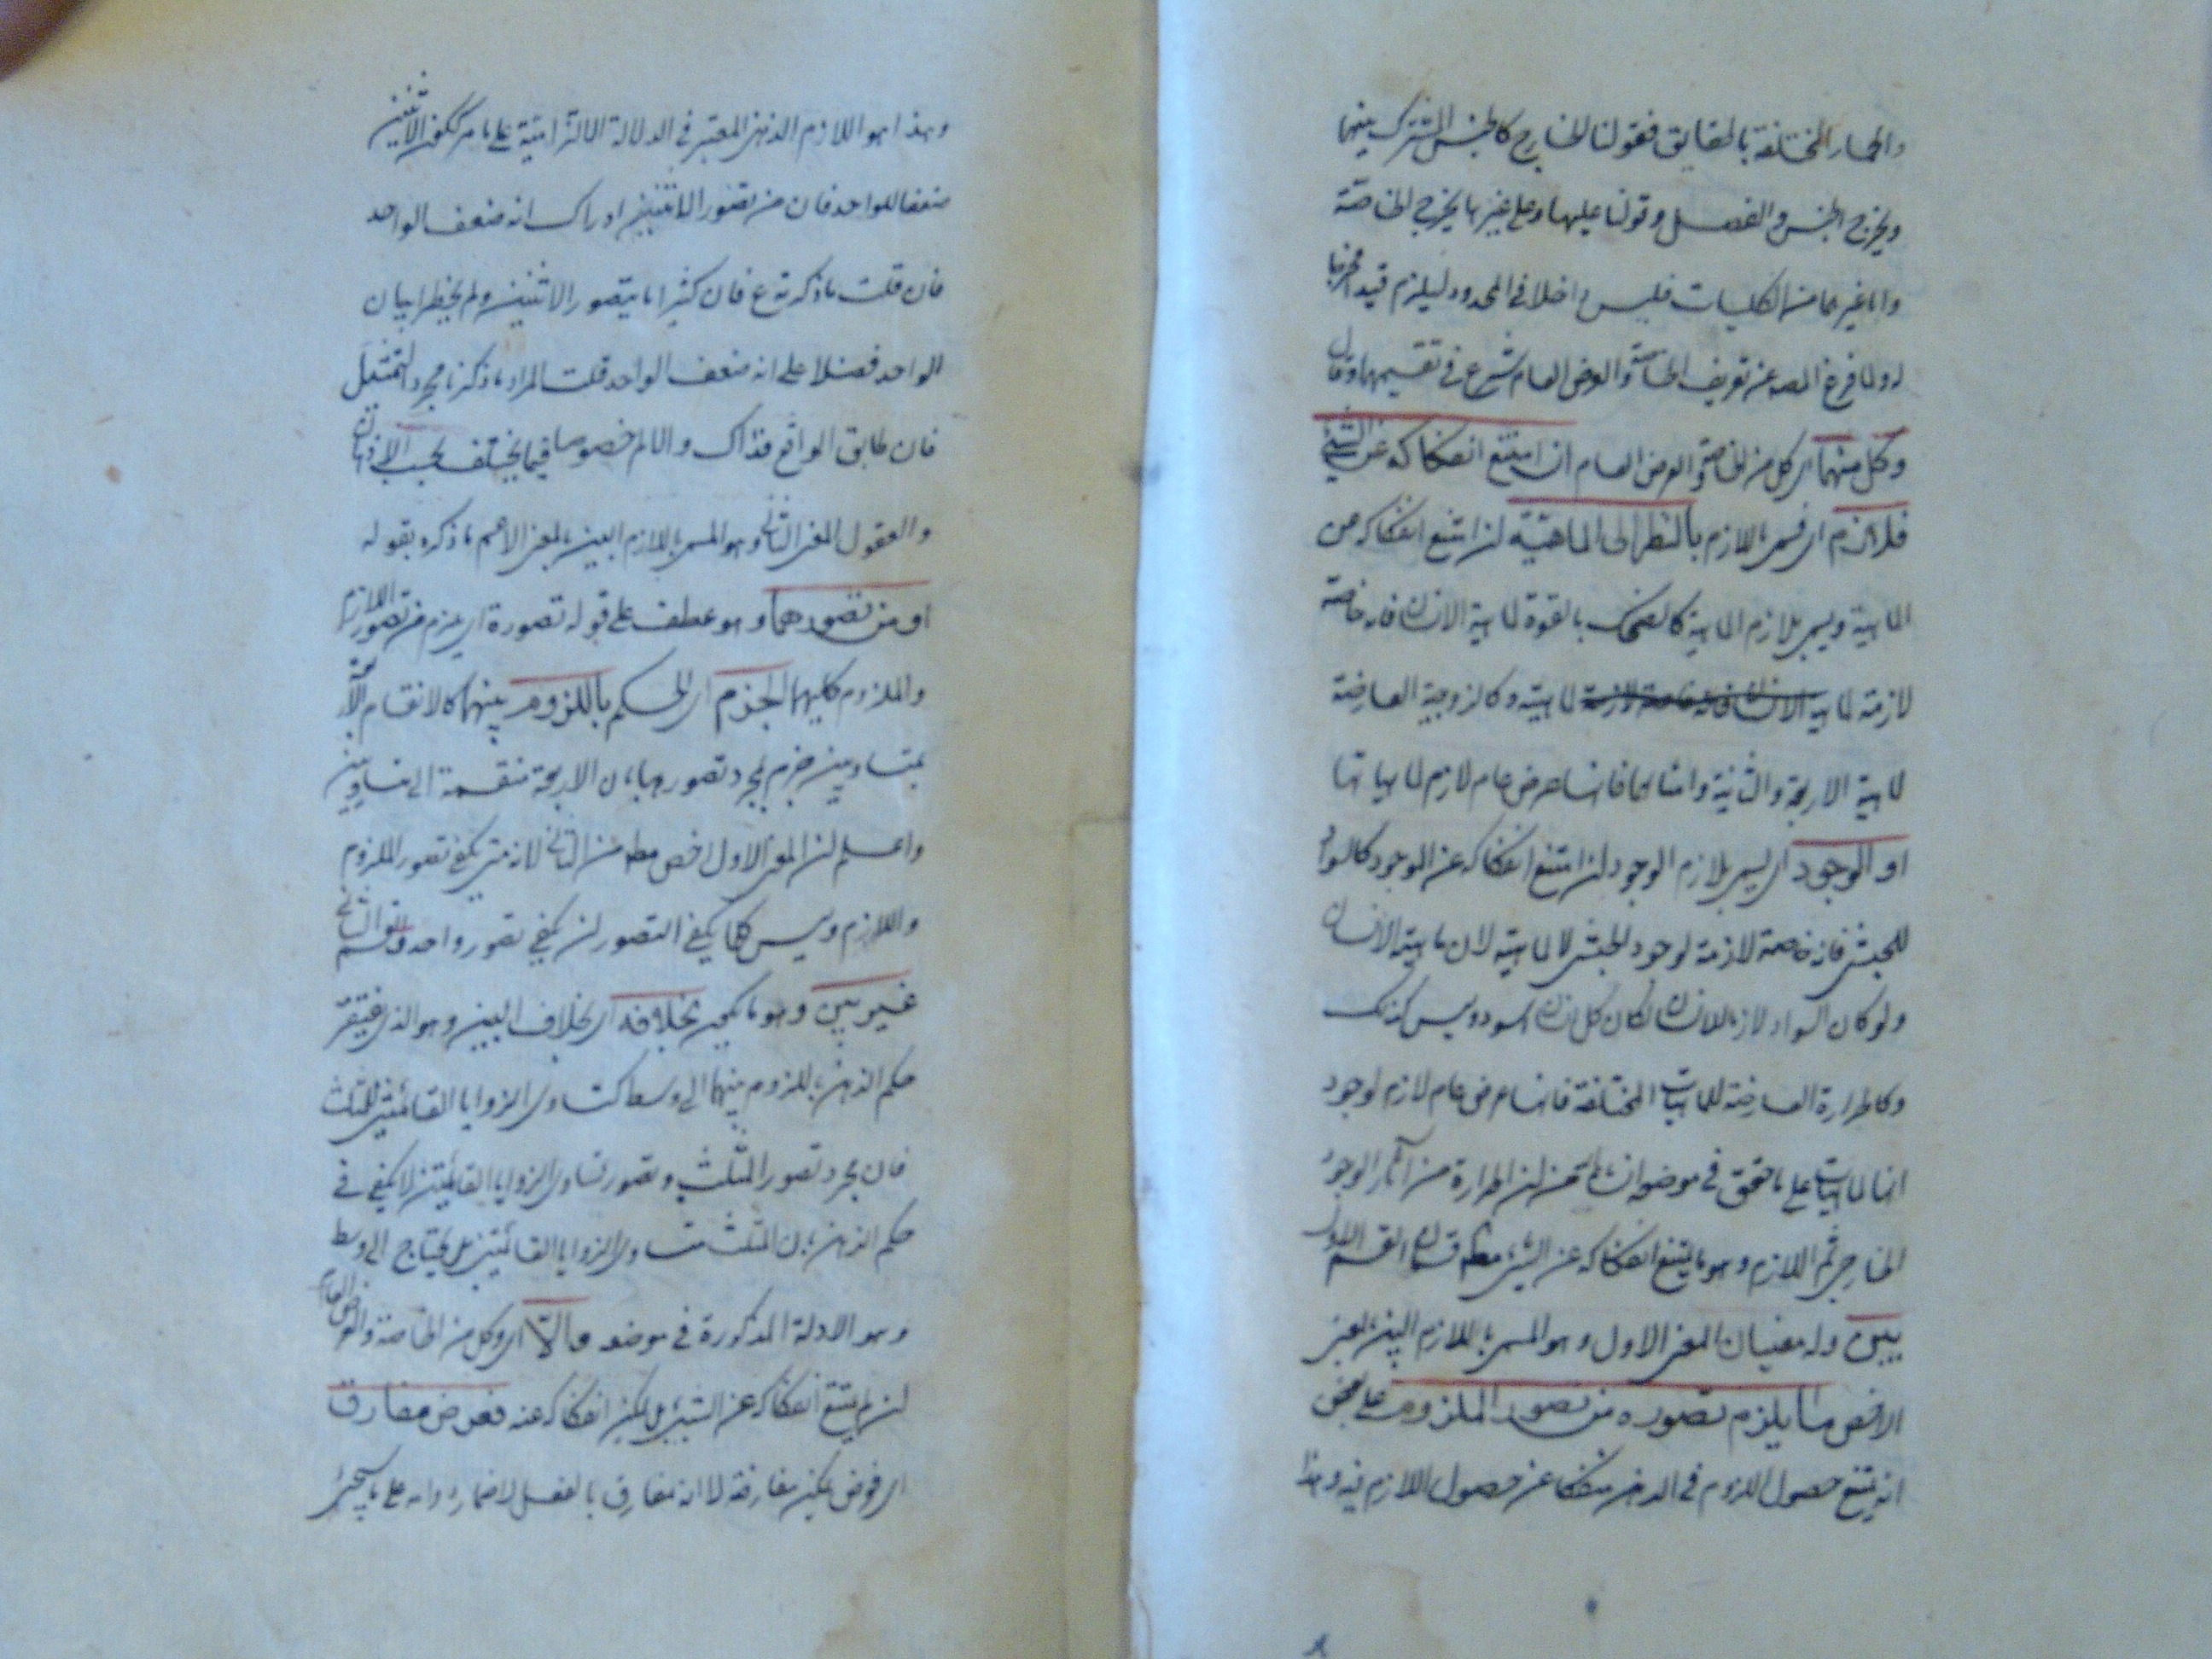 والحمار المختلفة بالحقايق فقولنا الخارج كالجنس المشترك بينهما
ويخرج الجنس والفصل وقولنا عليها وعلى غيرها يخرج الخاصة
واما غيرهما من الكليات فليس داخلا في المحدود ليلزم قيد مخرجا
ولما فرغ المصـ عن تعريف الخاصة والعرض العام شرع في تقسيمهما وقال
وكل منهما اى كل من الخاصة والعرض العام ان امتنع انفكاكه عن الشيئ
فلازم اى فسمى اللازم بالنظر الى الماهية ان امتنع انفكاكه عن
الماهية ويسمى بلازم الماهية كالضحك بالقوة لماهية الانسان فانه خاصة
لازمة لماهية وكالزوجية العارضة
لماهية الاربعة والثمانية وامثالهما فانها عرض عام لازم لماهياتها
او الوجود اى يسمى بلازم الوجود ان امتنع انفكاكه عن الوجود كالسواد
للحبشى فانه خاصة لازمة لوجود الحبشى لا لماهيته لان ماهيته الانسان
ولو كان السواد لازما للانسان لكان كل انسان اسود وليس كذلك
وكالحرارة العارضة للماهيات المختلفة فانها عرض عام لازم لوجود
الماهيات على ما حقق في موضعه من ان الحرارة من آثار الوجود
الخارجى ثم اللازم وهو ما يمتنع انفكاكه عن الشيئ مطـ قسمان القسم الاول
بين وله معنيان المعنى الاول وهو المسمى باللازم البين بالمعنى
الاخص ما يلزم تصوره من تصور الملزوم على معنى
انه يمتنع حصول الملزوم في الذهن منفكا عن حصول اللازم فيه وهذا
وهذا هو اللازم الذهنى المعتبر في الدلالة الالتزامية على ما مر ككون الاثنين
ضعفا للواحد فان من تصور الاثنين ادرك انه ضعف الواحد
فان قلت ما ذكرته مم فان كثيرا ما يتصور الاثنين ولم يخطر ببال
الواحد فضلا على انه ضعف الواحد قلت المراد بما ذكرنا مجرد التمثيل
فان طابق الواقع فذاك والا لم خصوصا فيما يختلف بحسب الاذهان
والعقول المعنى الثانى وهو المسمى باللازم البين بالمعنى الاعم ما ذكره بقوله
او من تصورهما وهو عطف على قوله تصوره اى يلزم من تصور اللازم
والملزوم كليهما الجزم اى الحكم باللزوم بينهما كالانقسام
بمتساويين جزم بمجرد تصورهما بان الاربعة منقسمة الى متساويين
واعلم ان المعنى الاول اخص مطـ من الثانى لانه متى يكفى تصور الملزوم
واللازم وليس كلما يكفى التصوران يكفى تصور واحد والقسم الثانى
غير بين وهو ما يكون بخلافه اى بخلاف البين وهو الذى يفتقر
حكم الذهن باللزوم بينهما الى وسط كتساوى الزوايا القائمتين للمثلث
فان مجرد تصور المثلث وتصور تساوى الزوايا القائمتين لا يكفى في
حكم الذهن بان المثلث متساوى الزوايا القائمتين بل يحتاج الى وسط
وهو الادلة المذكورة في موضعه والا اى وكل من الخاصة والعرض العام
ان لم يمتنع انفكاكه عن الشيئ بل يمكن انفكاكه عنه فعرض مفارق
اى عرض يمكن مفارقته لا انه مفارق بالفعل لاضماره وانه على ما سيجئ